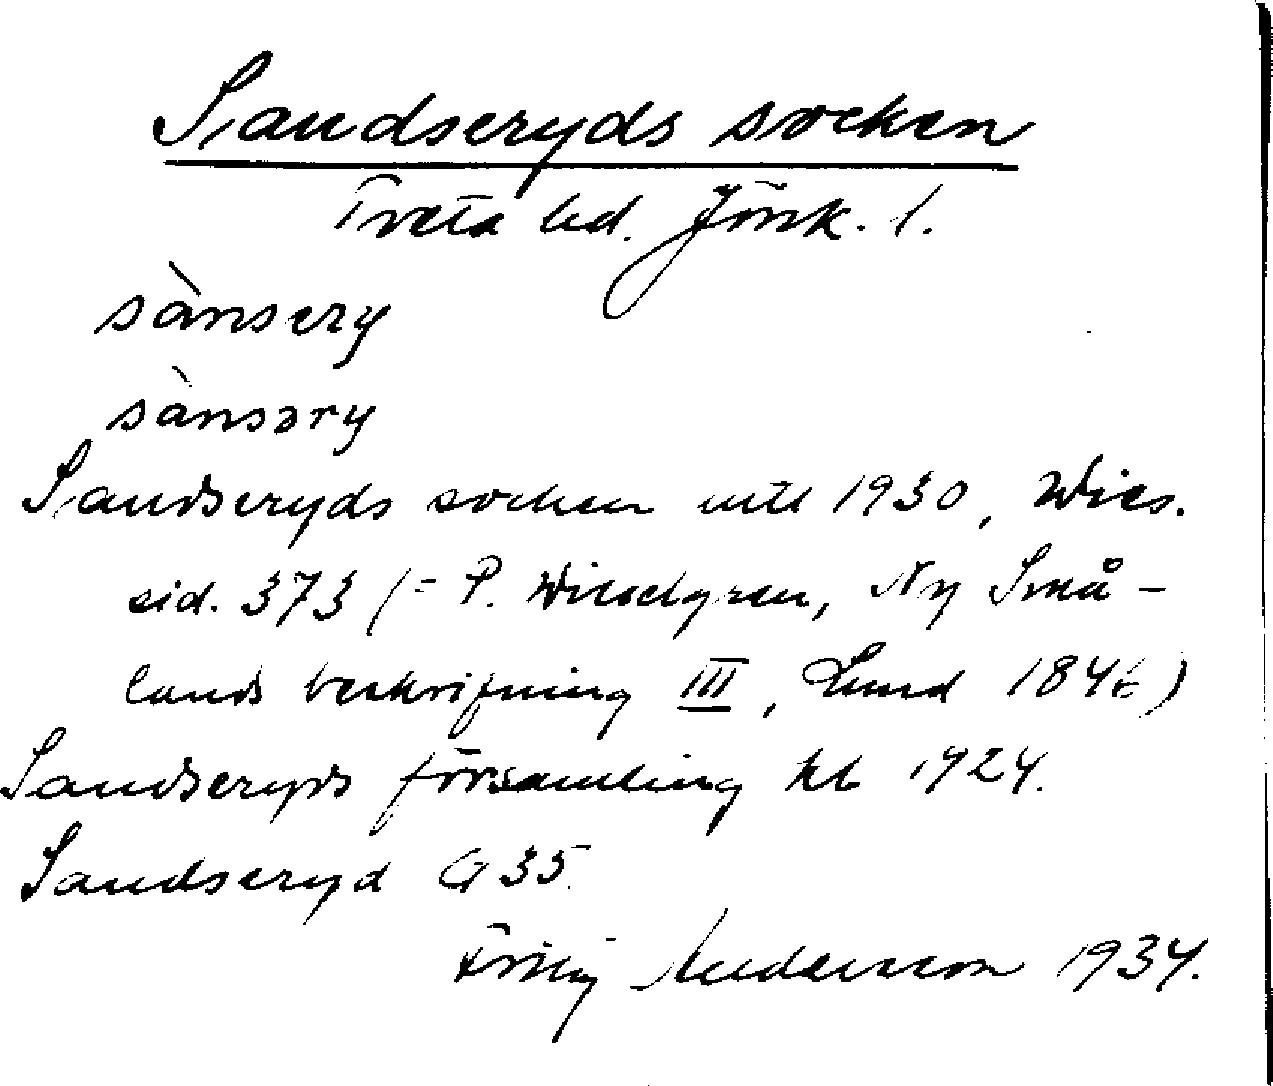 Sandseryds socken
Tveta hd. Jönk. l.
sànsery
sànsəry
Sandseryds socken intill 1930, Wies.
sid. 373 (= P. Wieselgren, Ny Små-
lands beskrifning III, Lund 1846)
Sandseryds församling kb 1924.
Sandseryd G 35.
Andersson 1934.